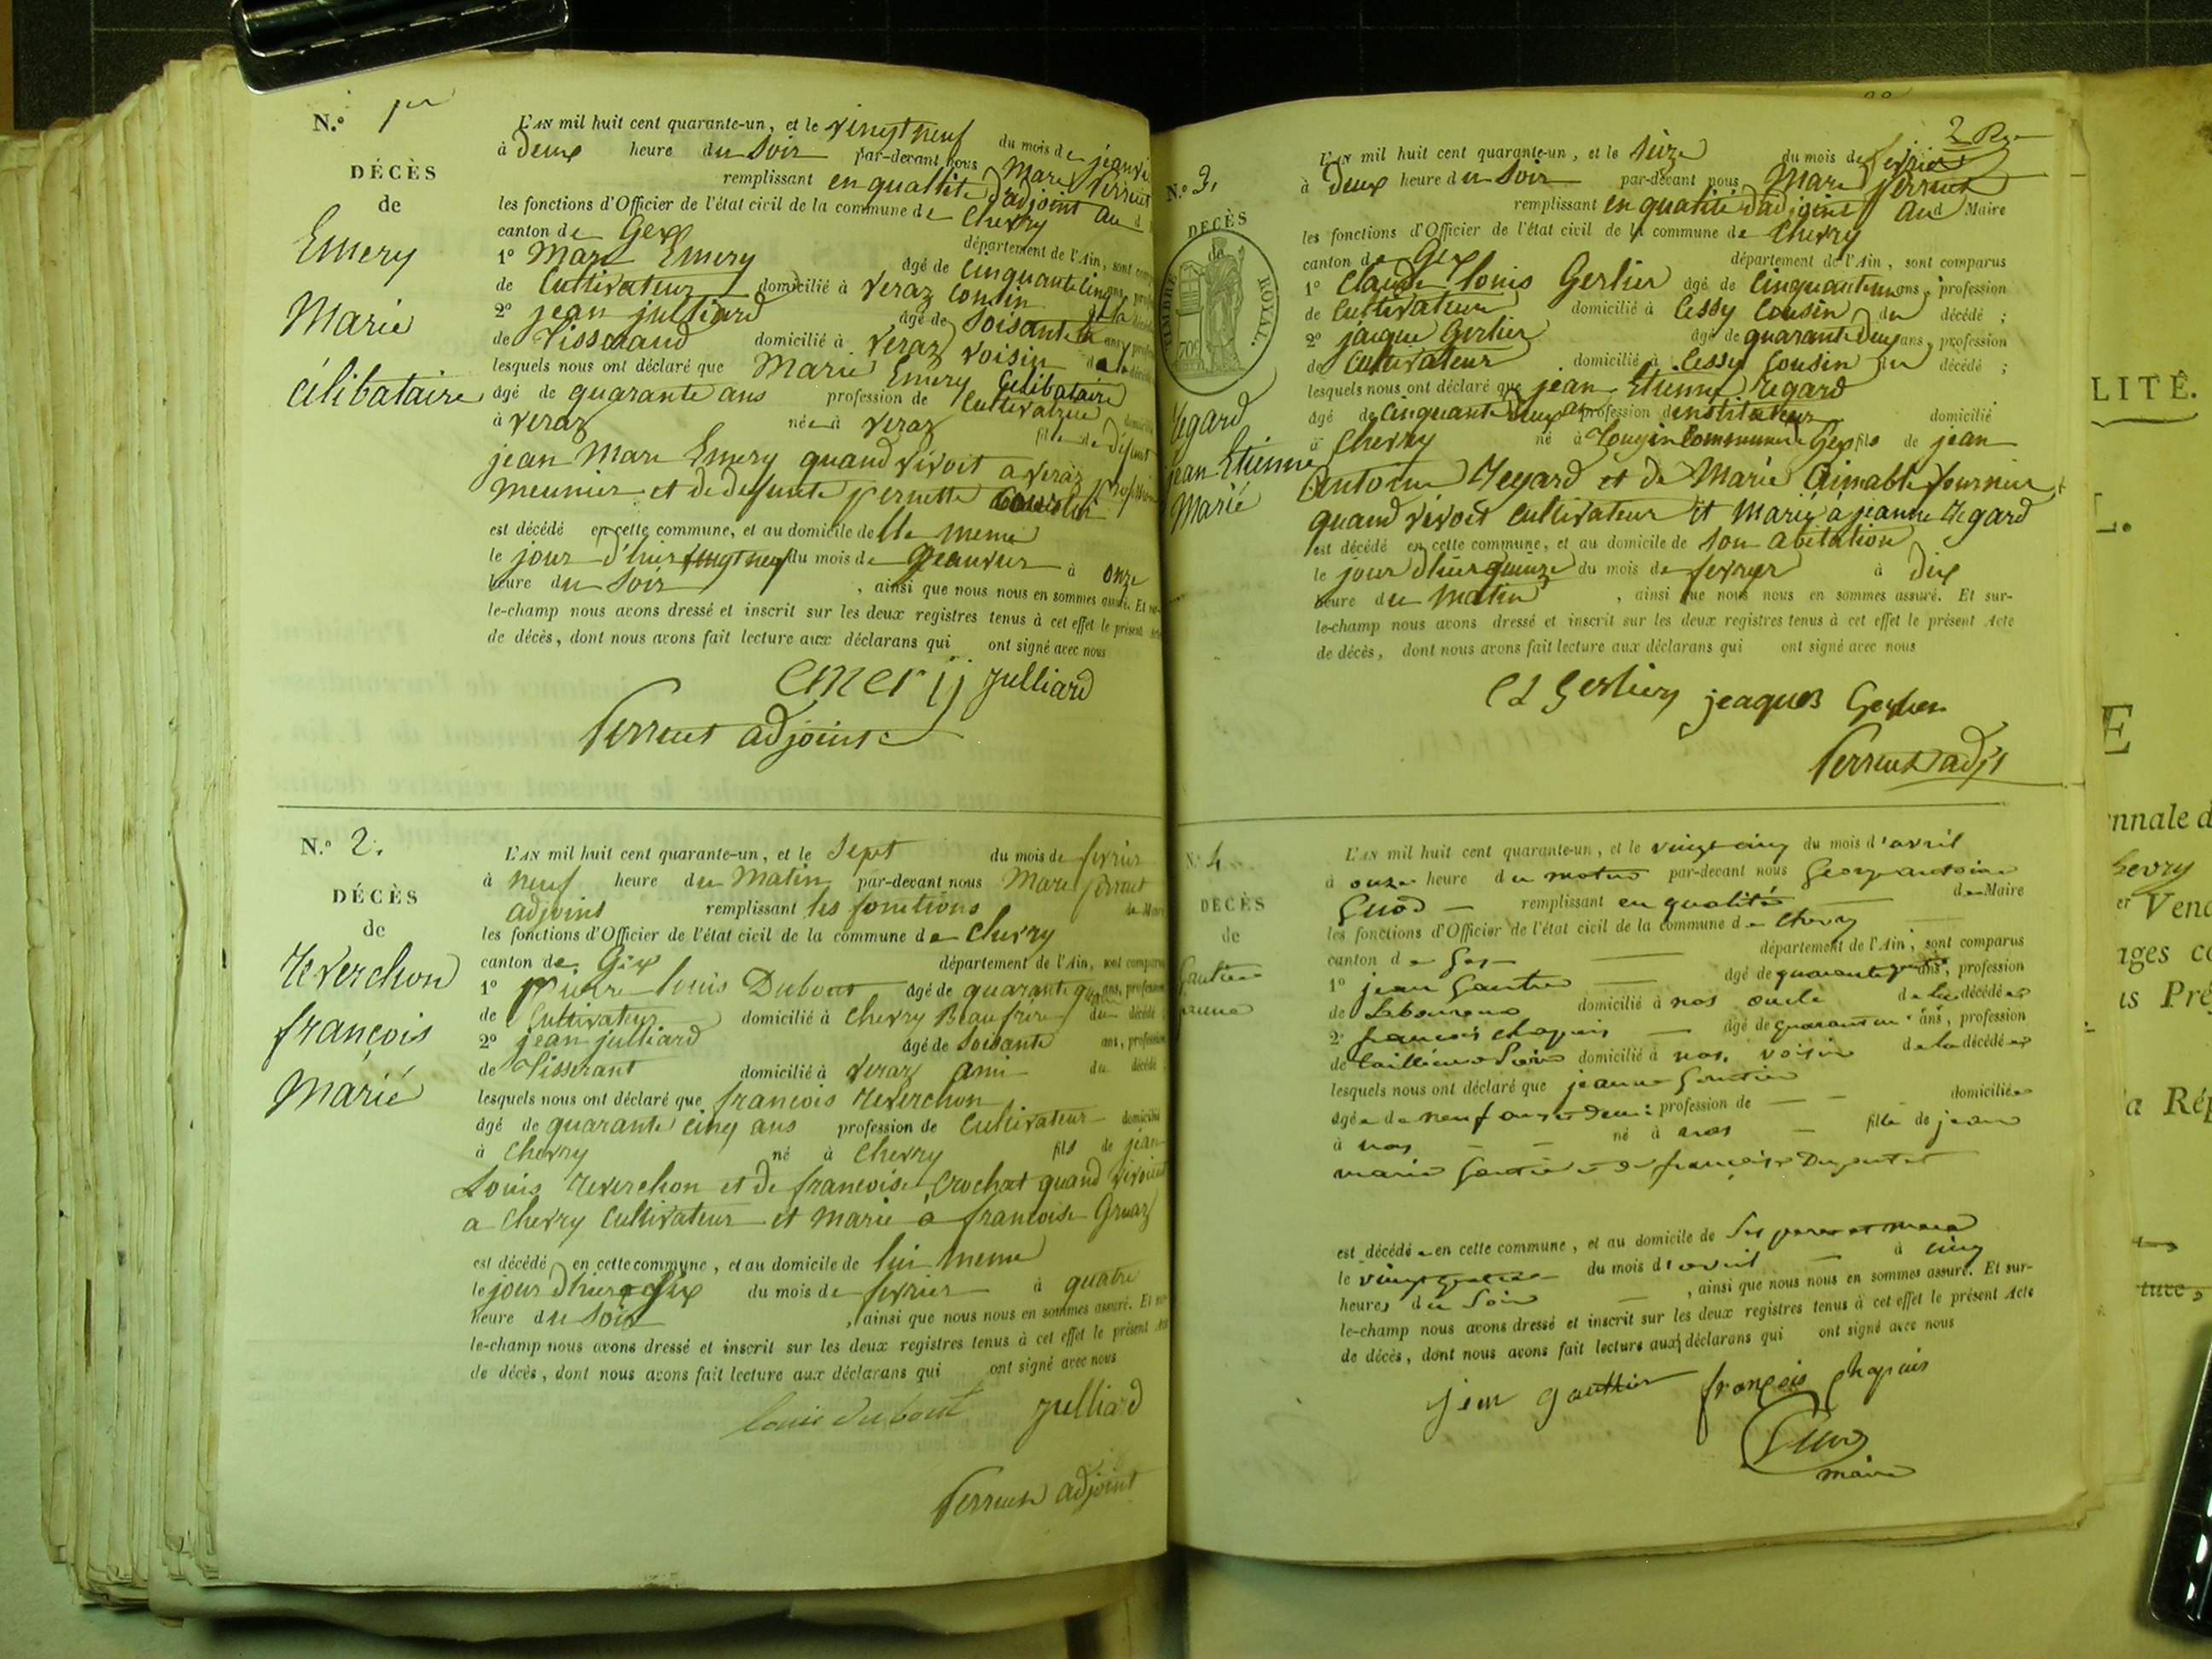 N.º 1er
DÉCÈS
de
Emery
Marie
célibataire
L'AN mil huit cent quarante-un, et le vingt neuf du mois de
à deux heure du Soir par-devant nous Marc Perrout
remplissant en qualité d'adjoint au
les fonctions d'Officier de l'état civil de la commune de Chevry
canton de Gex département de l'Ain, sont
1º Marc Emery âgé de Cinquante cinq ans,
de Cultivateur domicilié à Veraz Cousin
2º jean julliard âgé de Soisante ans,
de Tisserand domicilié à Veraz voisin de la
lesquels nous ont déclaré que Marie Emery Célibataire
âgé de quarante ans profession de Cultivatrice
à Veraz née à Veraz fille de défunt
jean Marc Emery quand vivoit a veraz profession
meunier et de defunte pernette
est décédé en cette commune, et au domicile de Elle meme
le jour d'hier vingt neuf du mois de jeanvier à onze
heure du Soir , ainsi que nous nous en sommes assuré. Et sur-
le-champ nous avons dressé et inscrit sur les deux registres tenus à cet effet le présent Acte
de décès, dont nous avons fait lecture aux déclarans qui ont signé avec nous
emerij julliard
Perrout adjoint
N.º 2.
DÉCÈS
de
Reverchon
françois
Marié
L'AN mil huit cent quarante-un, et le Sept du mois de fevrier
à neuf heure du Matin par-devant nous Marc perrout
adjoint remplissant les fonctions de Maire
les fonctions d'Officier de l'état civil de la commune de Chevry
canton de Gex département de l'Ain, sont comparus
1º pierre louis Dubout âgé de quarante ans, profession
de Cultivateur domicilié à Chevry Beaufrere du décédé
2º jean julliard âgé de Soisante ans, profession
de Tisserant domicilié à Veraz ami du décédé
lesquels nous ont déclaré que françois Reverchon
âgé de quarante cinq ans profession de Cultivateur domicilié
à Chevry né à Chevry fils de jean
Louis Reverchon et de francoise Crochat quand vivoient
a Chevry Cultivateur et marié à francoise Gruaz
est décédé en cette commune, et au domicile de lui meme
le jour d'hier six du mois de fevrier à quatre
heure du Soir , ainsi que nous nous en sommes assuré. Et sur-
le-champ nous avons dressé et inscrit sur les deux registres tenus à cet effet le présent Acte
de décès, dont nous avons fait lecture aux déclarans qui ont signé avec nous
louis dubout julliard
Perrout adjoint
2
N.º 3.
DÉCÈS
de
TIMBRE ROYAL.
70c
Regard
jean Etienne
Marié
L'AN mil huit cent quarante-un, et le Seize du mois de fevrier
à Deux heure du Soir par-devant nous Marc perrout
remplissant en qualité d'adjoint au d Maire
les fonctions d'Officier de l'état civil de la commune de Chevry
canton de Gex département de l'Ain, sont comparus
1º Claude louis Gerlier âgé de Cinquante un ans, profession
de Cultivateur domicilié à Cessy Cousin du décédé ;
2º jaique Gerlier âgé de quarante deux ans, profession
de Cultivateur domicilié à Cessy Cousin du décédé ;
lesquels nous ont déclaré que jean Etienne Regard
âgé de Cinquante deux ans profession de instituteur domicilié
à Chevry né à Tougin Commune de Gex fils de jean
Antoine Regard et de Marie Aimable fournier
quand vivoit cultivateur et Marié à jeanne Regard
est décédé en cette commune, et au domicile de son abitation
le jour d'hier quinze du mois de fevrier à dix
heure du Matin , ainsi que nous nous en sommes assuré. Et sur-
le-champ nous avons dressé et inscrit sur les deux registres tenus à cet effet le présent Acte
de décès, dont nous avons fait lecture aux déclarans qui ont signé avec nous
C L Gerlier jeaques Gerlier
Perrout adjt
N.º 4
DÉCÈS
de
Gautier
jeanne
L'AN mil huit cent quarante-un, et le vingt cinq du mois d'avril
à onze heure du matin par-devant nous George antoine
remplissant en qualité de Maire
les fonctions d'Officier de l'état civil de la commune de Chevry
canton de Gex département de l'Ain, sont comparus
1º jean Gautier âgé de quarante ans, profession
de Laboureur domicilié à nas oncle de la décédée
2º françois chapuis âgé de quarante un ans, profession
de domicilié à nas, voisin de la décédée
lesquels nous ont déclaré que jeanne Gautier
âgée de neuf ans et demi profession de domiciliée
à nas né à nas fille de jean
marie Gautier et de françoise
est décédée en cette commune, et au domicile de ses pere et mere
le vingt quatre du mois d'avril à cinq
heures du Soir , ainsi que nous nous en sommes assuré. Et sur-
le-champ nous avons dressé et inscrit sur les deux registres tenus à cet effet le présent Acte
de décès, dont nous avons fait lecture aux déclarans qui ont signé avec nous
jean gauthier françois chapuis
maire
LITÉ.
L.
E
nnale d
hevry
er Vend
ages co
is Pré
a Rép